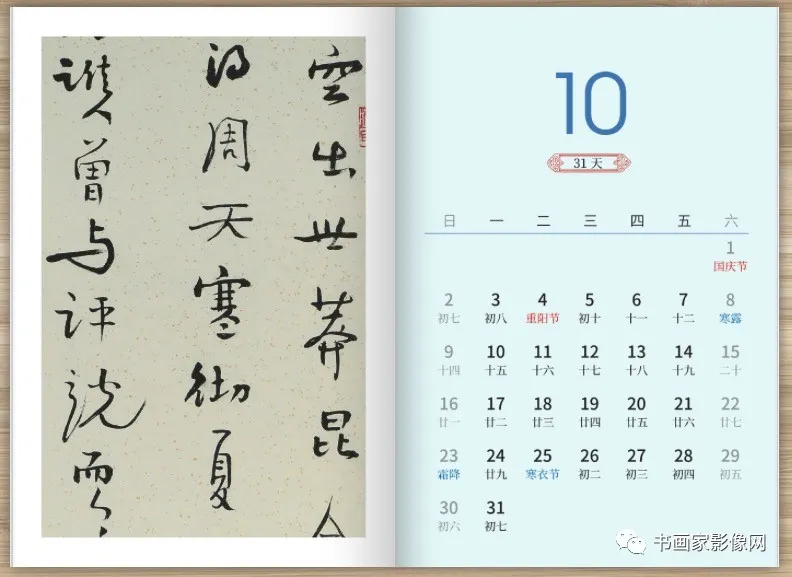 空出世莽昆
得周天寒彻夏
谁人曾与评说而
10
31 天
日 一 二 三 四 五 六
1
国庆节
2 3 4 5 6 7 8
初七 初八 重阳节 初十 十一 十二 寒露
9 10 11 12 13 14 15
十四 十五 十六 十七 十八 十九 二十
16 17 18 19 20 21 22
廿一 廿二 廿三 廿四 廿五 廿六 廿七
23 24 25 26 27 28 29
霜降 廿九 寒衣节 初二 初三 初四 初五
30 31
初六 初七
书画家影像网